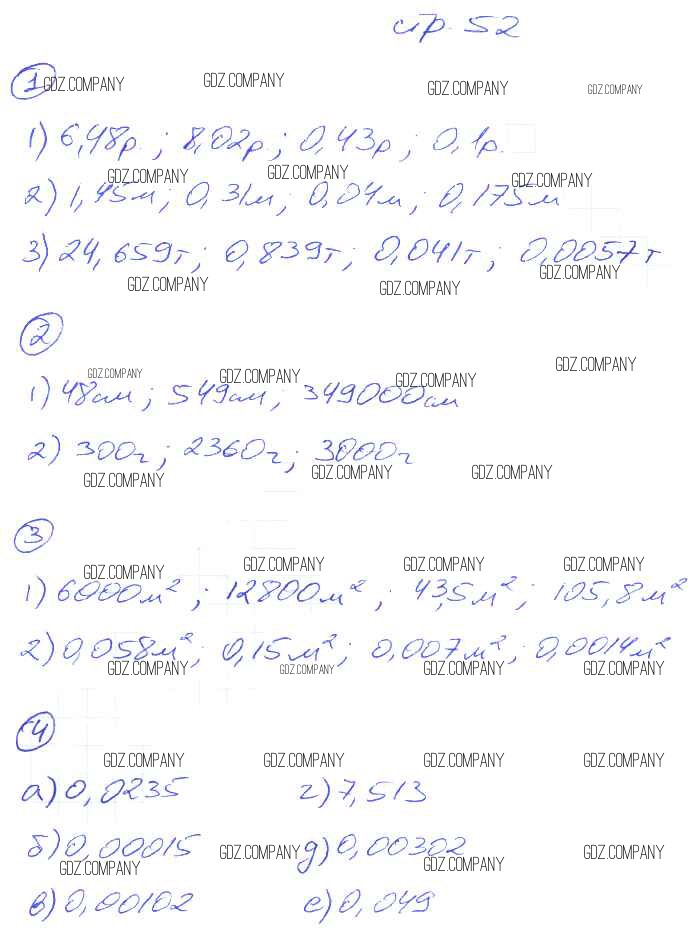 стр. 52
1
GDZ.COMPANY GDZ.COMPANY GDZ.COMPANY GDZ.COMPANY
1) 6,48р.; 8,02р.; 0,43р; 0,1р.
GDZ.COMPANY GDZ.COMPANY GDZ.COMPANY
2) 1,45м; 0,31м; 0,04м; 0,175м
3) 24,659т; 0,839т; 0,041т; 0,0057т
GDZ.COMPANY GDZ.COMPANY GDZ.COMPANY
2
GDZ.COMPANY GDZ.COMPANY GDZ.COMPANY GDZ.COMPANY
1) 48см; 549см; 349000см
2) 300г; 2360г; 3000г
GDZ.COMPANY GDZ.COMPANY GDZ.COMPANY
3
GDZ.COMPANY GDZ.COMPANY GDZ.COMPANY GDZ.COMPANY
1) 6000м²; 12800м²; 43,5м²; 105,8м²
2) 0,058м²; 0,15м²; 0,007м²; 0,0014м²
GDZ.COMPANY GDZ.COMPANY GDZ.COMPANY GDZ.COMPANY
4
GDZ.COMPANY GDZ.COMPANY GDZ.COMPANY GDZ.COMPANY
а) 0,0235 г) 7,513
б) 0,00015 д) 0,00302
GDZ.COMPANY GDZ.COMPANY GDZ.COMPANY GDZ.COMPANY
в) 0,00102 е) 0,049